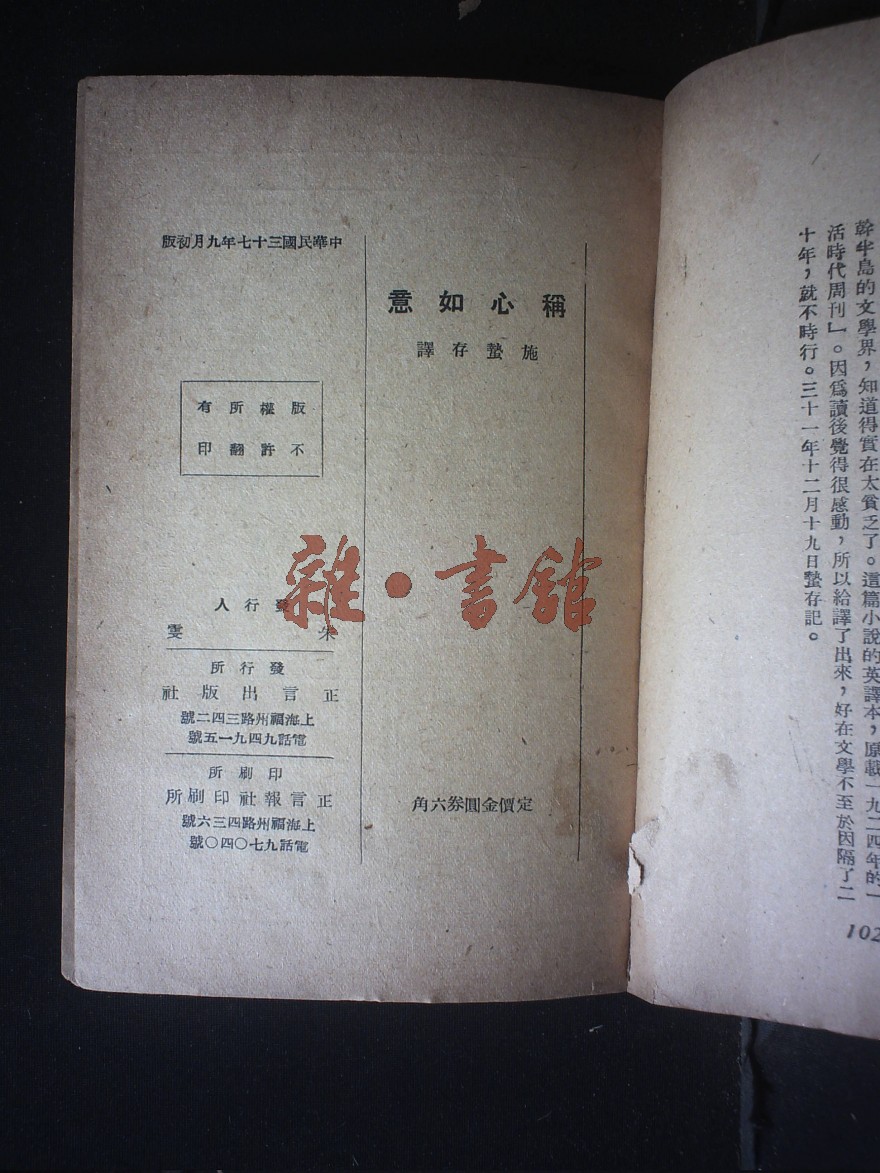 幹半島的文學界，知道得實在太貧乏了。這篇小說的英譯本，原載一九二四年的一
活時代周刊」。因爲讀後覺得很感動，所以給譯了出來，好在文學不至於因隔了二
十年，就不時行。三十一年十二月十九日蟄存記。
102
稱心如意
施蟄存譯
定價金圓券六角
中華民國三十七年九月初版
版權所有
不許翻印
發行人
朱雯
發行所
正言出版社
上海福州路三四二號
電話九四九一五號
印刷所
正言報社印刷所
上海福州路四三六號
電話九七〇四〇號
雜·書館